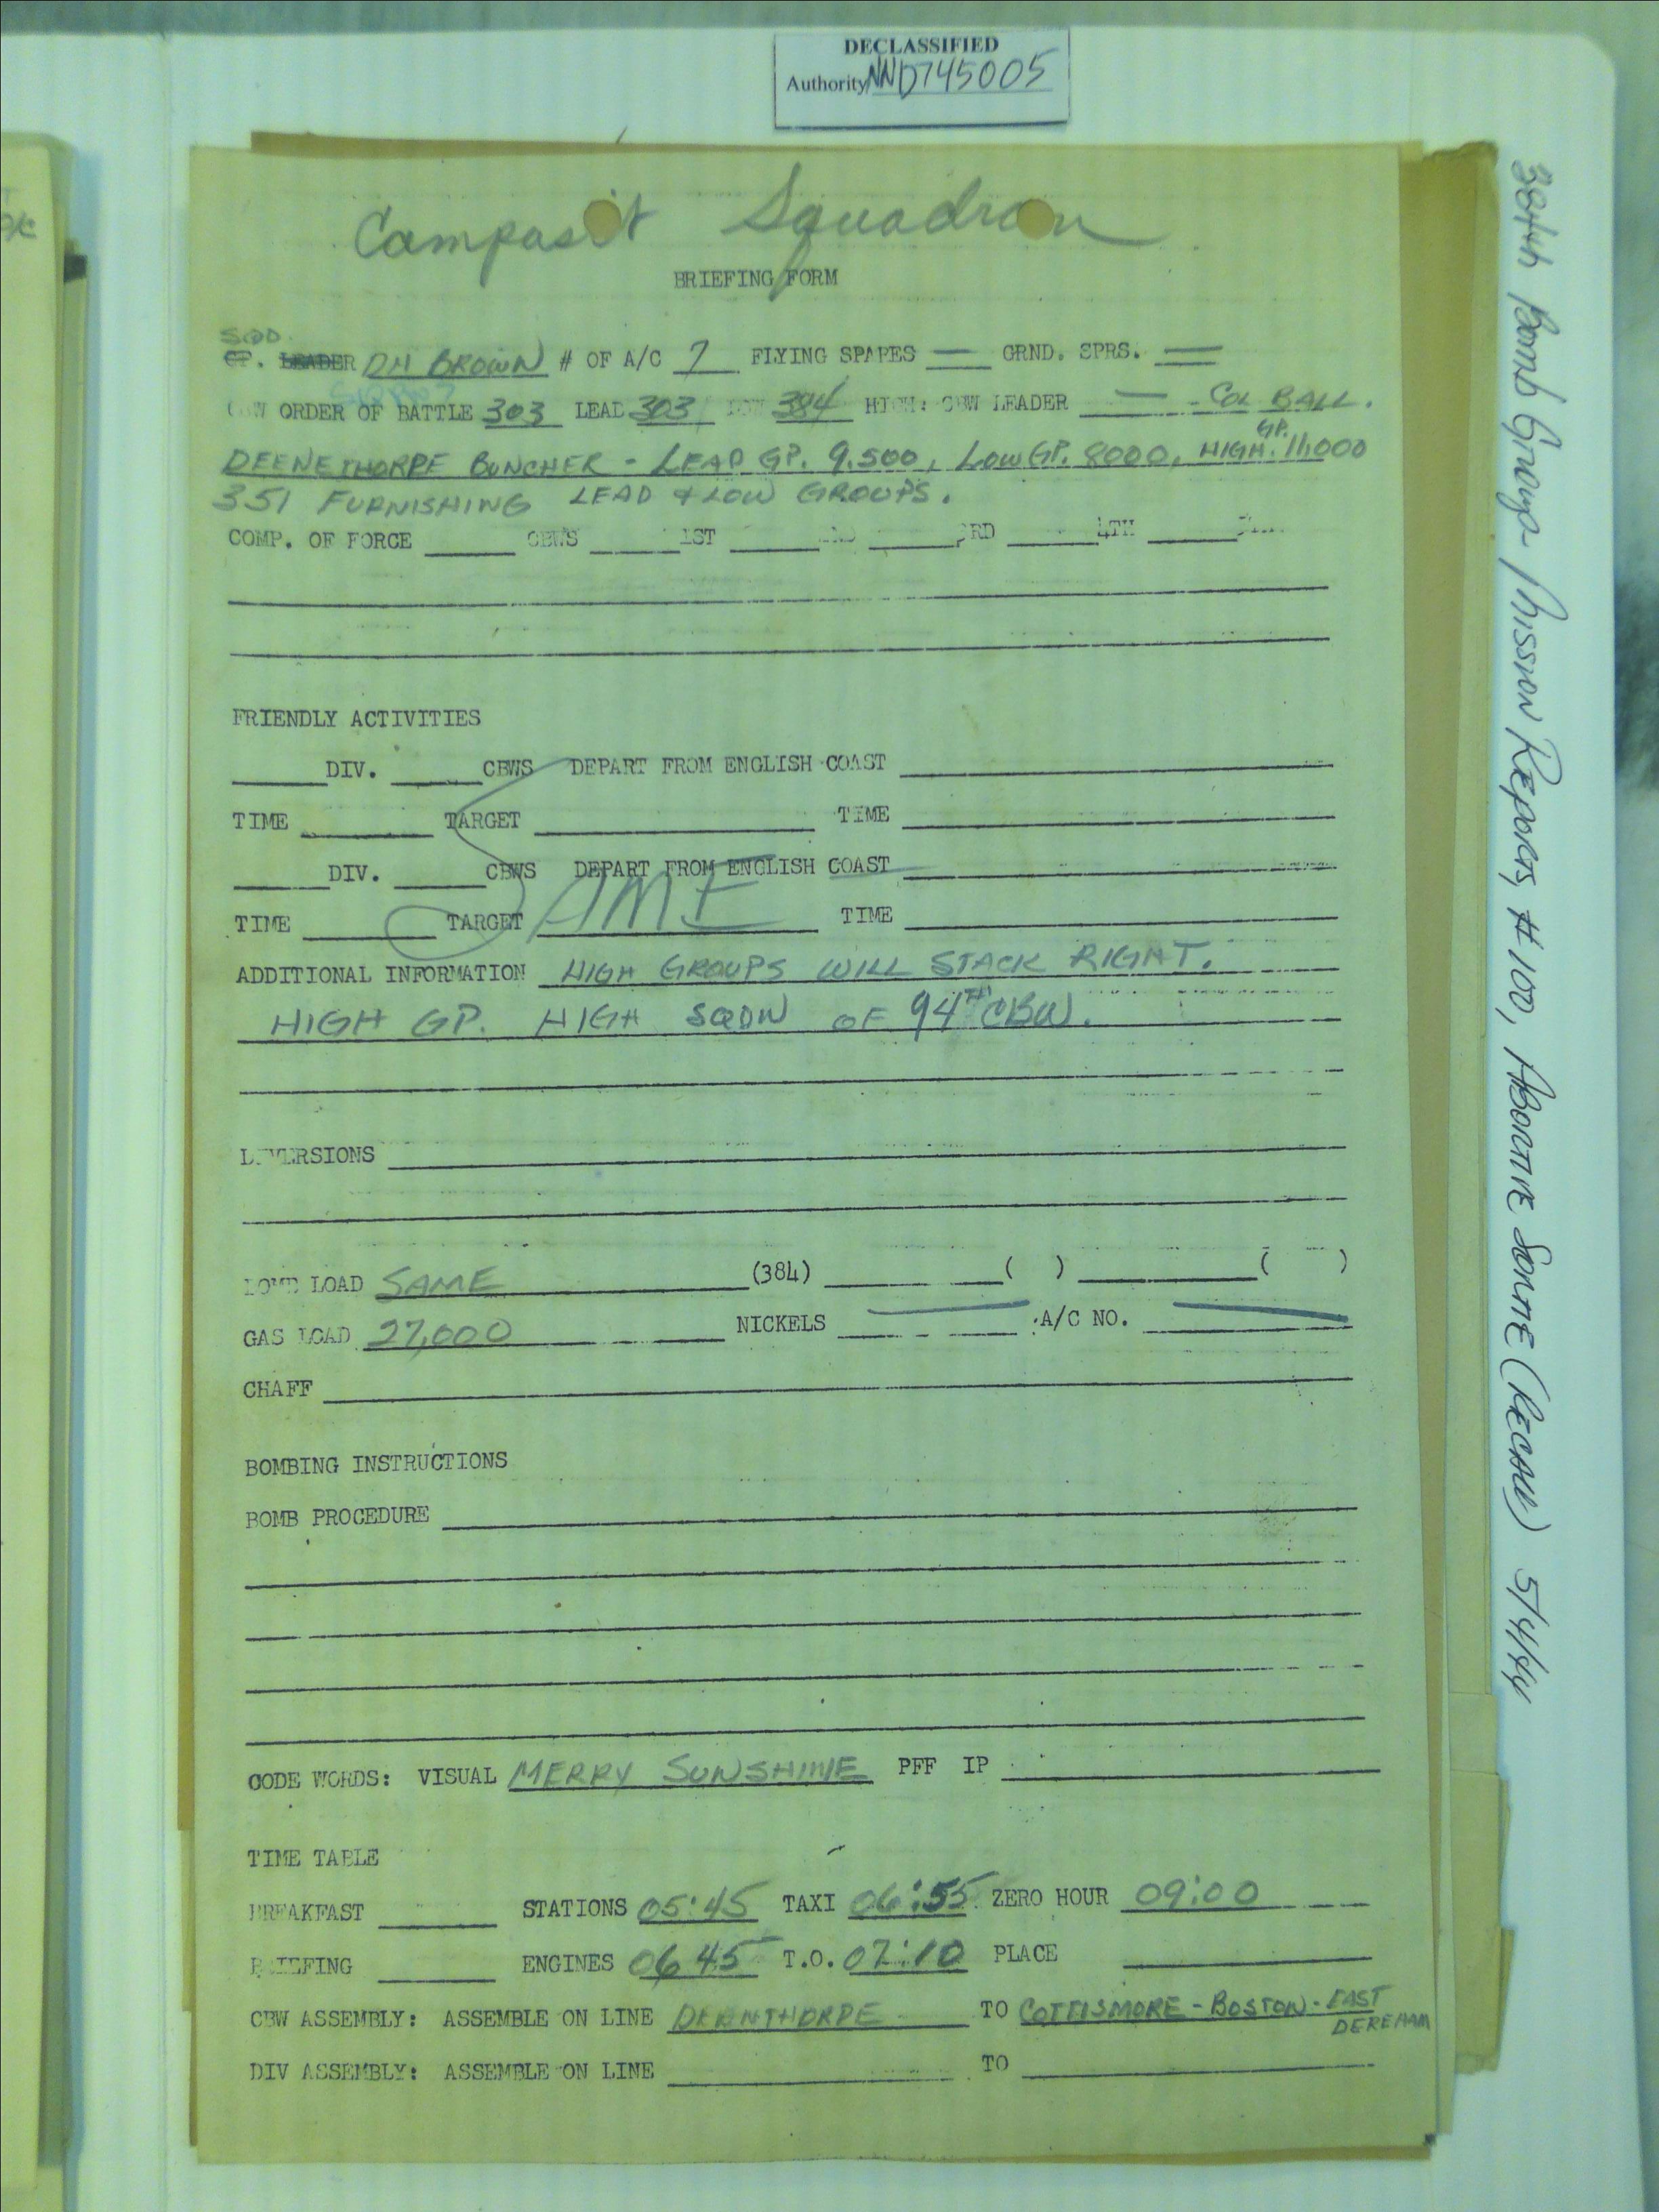 DECLASSIFIED
Authority NND745005
Composit Squadron
BRIEFING FORM
SQD.
GP. LEADER DH BROWN # OF A/C 7 FLYING SPARES — GRND. SPRS. —
CBW ORDER OF BATTLE 303 LEAD 303 LOW 384 HIGH: CBW LEADER — - COL BALL.
DEENETHORPE BUNCHER - LEAD GP. 9.500, LOW GP. 8000, HIGH GP. 11,000
351 FURNISHING LEAD & LOW GROUPS.
COMP. OF FORCE ____ CBWS ____ 1ST ____ ____ 3RD ____ 4TH ____
FRIENDLY ACTIVITIES
____ DIV. ____ CBWS DEPART FROM ENGLISH COAST ____
TIME ____ TARGET ____ TIME ____
____ DIV. ____ CBWS DEPART FROM ENGLISH COAST ____
TIME ____ TARGET ____ TIME ____
SAME
ADDITIONAL INFORMATION HIGH GROUPS WILL STACK RIGHT.
HIGH GP. HIGH SQDN OF 94TH CBW.
DIVERSIONS
BOMB LOAD SAME (384) ____ ( ) ____ ( )
GAS LOAD 27,000 NICKELS — A/C NO. —
CHAFF
BOMBING INSTRUCTIONS
BOMB PROCEDURE
CODE WORDS: VISUAL MERRY SUNSHINE PFF IP
TIME TABLE
BREAKFAST ____ STATIONS 05:45 TAXI 06:55 ZERO HOUR 09:00
BRIEFING ____ ENGINES 0645 T.O. 07:10 PLACE ____
CBW ASSEMBLY: ASSEMBLE ON LINE DEENTHORPE TO COTTISMORE - BOSTON - EAST DEREHAM
DIV ASSEMBLY: ASSEMBLE ON LINE ____ TO ____
384th Bomb Group - Mission Reports, #100, Abortive Sortie (Recall) 5/4/44